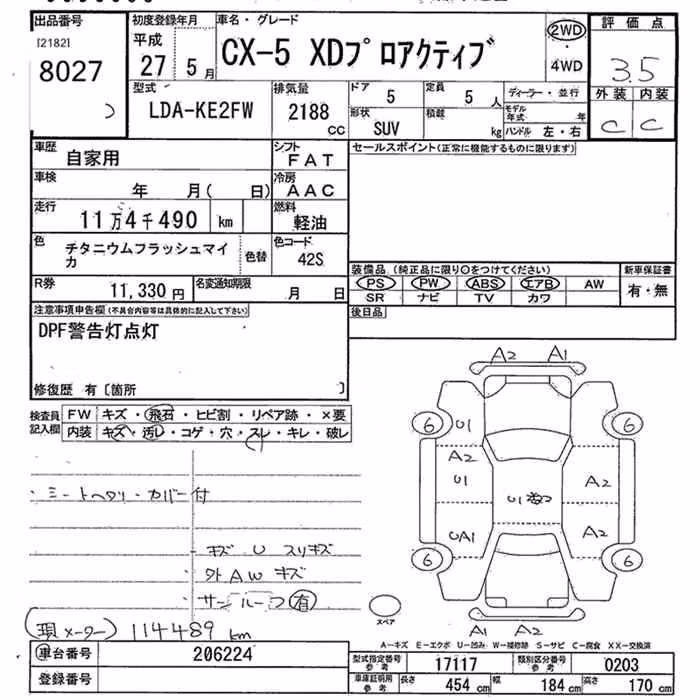 出品番号
[2182]
8027
初度登録年月
平成
27 5月
車名・グレード
CX-5 XDプロアクティブ
2WD
・
4WD
評価点
3.5
外装 内装
C C
型式
LDA-KE2FW
排気量
2188
CC
ドア
5
定員
5 人
ディーラー・並行
形状
SUV
積載
kg
モデル年式 年
ハンドル 左・右
車歴
自家用
シフト
FAT
セールスポイント(正常に機能するものに限ります)
車検
年 月( 日)
冷房
AAC
走行
11万4千490 km
燃料
軽油
色
チタニウムフラッシュマイカ
色替
色コード
42S
装備品(純正品に限り○をつけてください)
新車保証書
PS PW ABS エアB AW
有・無
SR ナビ TV カワ
R券
11,330 円
名変通知期限
月 日
後日品
注意事項申告欄(不具合内容等は具体的に記入して下さい)
DPF警告灯点灯
修復歴 有〔箇所 〕
検査員記入欄
FW キズ・飛石・ヒビ割・リペア跡・×要
内装 キズ・汚レ・コゲ・穴・スレ・キレ・破レ
A2 A1
6 U1 6
A2
U1 A2
U1
UA1 A2
6 6
スペア
A1 A2
・シートヘタリ・カバー付
・キズ U スリキズ
外AWキズ
サンルーフ有
(現メーター) 114489 km
A-キズ E-エクボ U-凹み W-補修跡 S-サビ C-腐食 XX-交換済
車台番号
206224
登録番号
型式指定番号 参考
17117
類別区分番号 参考
0203
車庫証明用 参考
長さ 454 cm 幅 184 cm 高さ 170 cm